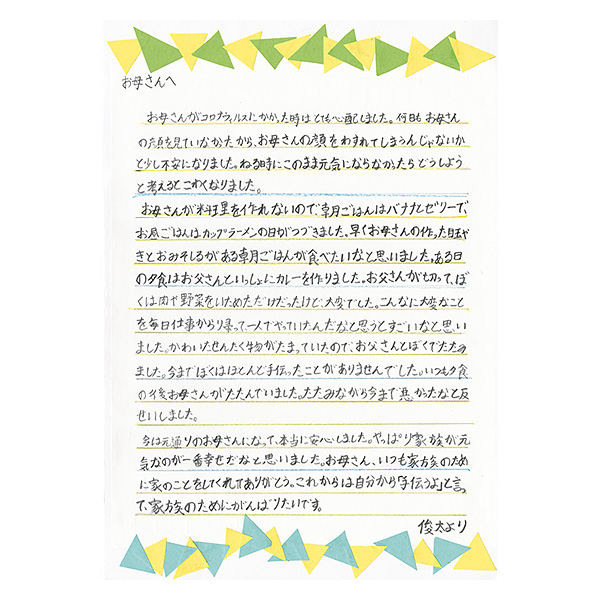 お母さんへ
お母さんがコロナウィルスにかかった時はとても心配しました。何日もお母さん
の顔を見ていなかったから、お母さんの顔をわすれてしまうんじゃないか
と少し不安になりました。ねる時にこのまま元気にならなかったらどうしよう
と考えるとこわくなりました。
お母さんが料理を作れないので、朝ごはんはバナナとゼリーで、
お昼ごはんはカップラーメンの日がつづきました。早くお母さんの作った目玉や
きとおみそしるがある朝ごはんが食べたいなと思いました。ある日
の夕食はお父さんといっしょにカレーを作りました。お父さんが切って、ぼ
くは肉や野菜をいためただけだったけど、大変でした。こんなに大変なこと
を毎日仕事から帰って一人でやっていたんだなと思うとすごいなと思い
ました。かわいたせんたく物がたまっていたので、お父さんとぼくでたたみ
ました。今までぼくはほとんど手伝ったことがありませんでした。いつも夕食
の後お母さんがたたんでいました。たたみながら今まで悪かったなと反
せいしました。
今は元通りのお母さんになって、本当に安心しました。やっぱり家族が元
気なのが一番幸せだなと思いました。お母さん、いつも家族のため
に家のことをしてくれてありがとう。これからは自分から「手伝うよ」と言っ
て、家族のためにがんばりたいです。
俊太より